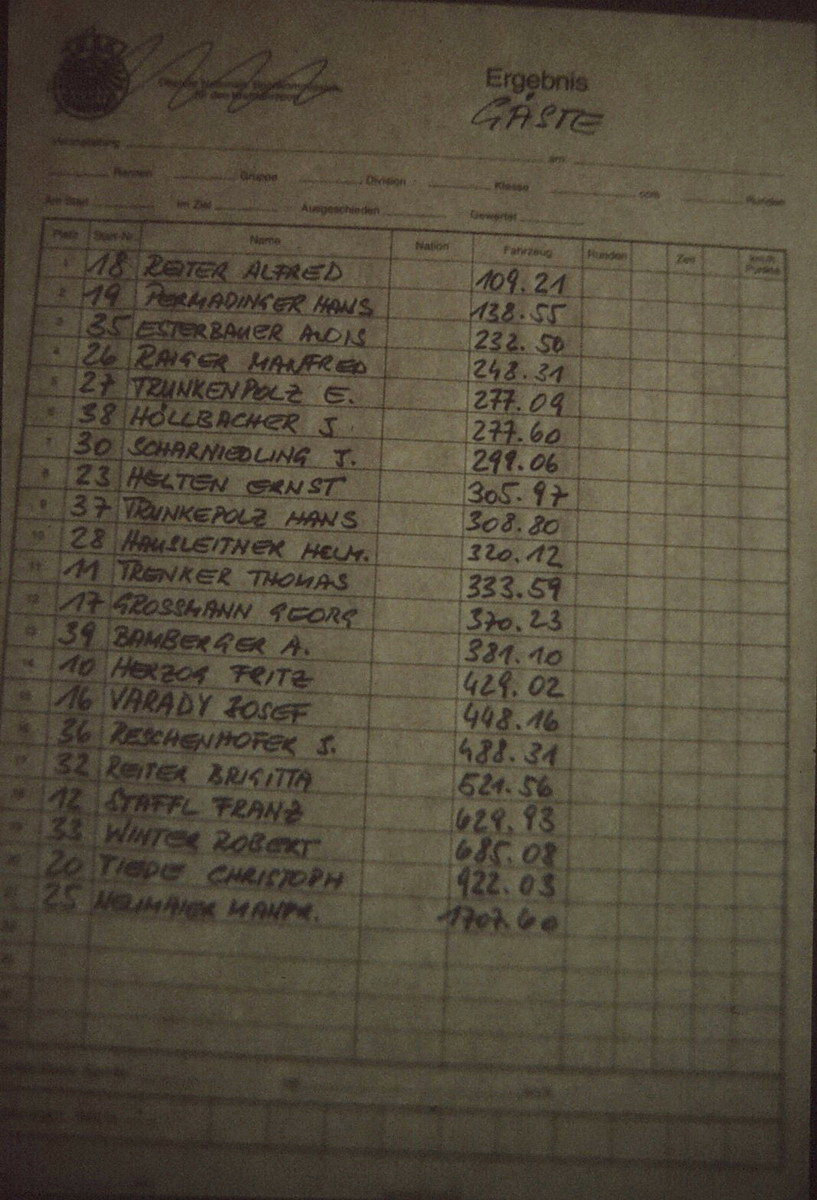 Ergebnis
GÄSTE
Veranstaltung am
Rennen Gruppe Division Klasse ccm Runden
Am Start im Ziel Ausgeschieden Gewertet
Platz Start-Nr. Name Nation Fahrzeug Runden Zeit km/h Punkte
1 18 REITER ALFRED 109.21
2 19 PERMADINGER HANS 138.55
3 35 ESTERBAUER ALOIS 232.50
4 26 RAIGER MANFRED 248.31
5 27 TRUNKENPOLZ E. 277.09
6 38 HÖLLBACHER J. 277.60
7 30 SCHARNIEDLING J. 299.06
8 23 HELTEN ERNST 305.97
9 37 TRUNKEPOLZ HANS 308.80
10 28 HAUSLEITNER HELM. 320.12
11 11 TRENKER THOMAS 333.59
12 17 GROSSMANN GEORG 370.23
13 39 BAMBERGER A. 381.10
14 10 HERZOG FRITZ 429.02
15 16 VARADY JOSEF 448.16
16 36 RESCHENHOFER J. 488.31
17 32 REITER BRIGITTA 521.56
18 12 STAFFL FRANZ 629.93
19 33 WINTER ROBERT 685.08
20 20 TIEDE CHRISTOPH 922.03
21 25 NEUMAIER MANFR. 1707.60